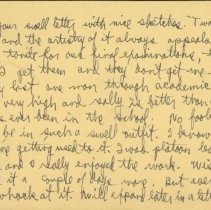 your swell letter with nice sketches. I wo
and the artistry of it always appeals
tonite for our final examinations,
I get them and they don't get me.
last one morn through academic
very high and really is better than
ever been in the school. No fool
be in such a swell outfit. I know
getting used to it. I was platoon lea
and I really enjoyed the work. Wis
it a couple of days more, but ever
whack at it. Will expand later in a lett